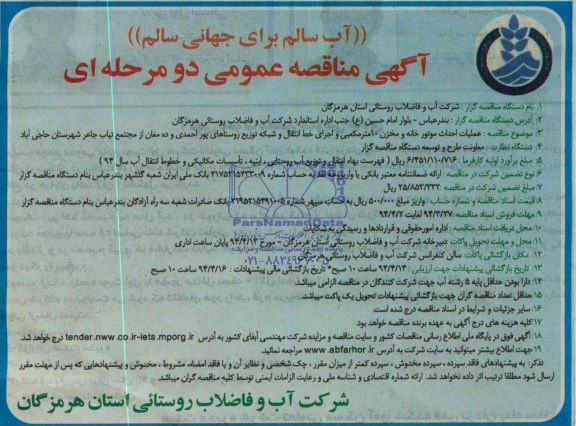 ((آب سالم برای جهانی سالم))
آگهی مناقصه عمومی دو مرحله ای
۱. نام دستگاه مناقصه گزار: شرکت آب و فاضلاب روستائی استان هرمزگان
۲. آدرس دستگاه مناقصه گزار: بندرعباس - بلوار امام حسین (ع) جنب اداره استاندارد شرکت آب و فاضلاب روستائی هرمزگان
۳. موضوع مناقصه: عملیات احداث موتور خانه و مخزن ۱۰مترمکعبی و اجرای خط انتقال و شبکه توزیع روستاهای پور احمدی و ده مغان از مجتمع نیاب جاعر شهرستان حاجی آباد
۴. دستگاه نظارت: معاونت طرح و توسعه دستگاه مناقصه گزار
۵. مبلغ برآورد اولیه کارفرما: ۶/۴۵۱/۱۱۰/۷۱۶ ریال (فهرست بهاء انتقال و توزیع آب روستایی، ابنیه، تأسیسات مکانیکی و خطوط انتقال آب سال ۹۴)
۶. نوع تضمین شرکت در مناقصه: ارائه ضمانتنامه معتبر بانکی یا واریز وجه نقد به حساب شماره بانک ملی ایران شعبه گلشهر بندرعباس بنام دستگاه مناقصه گزار
۷. مبلغ تضمین شرکت در مناقصه: ریال
۸. قیمت اسناد مناقصه و شماره حساب: واریز مبلغ ۵۰۰/۰۰۰ ریال به حساب سپهر شماره بانک صادرات شعبه سه راه آزادگان بندرعباس بنام دستگاه مناقصه گزار
۹. مهلت فروش اسناد مناقصه: ۹۴/۳/۲۷ لغایت ۹۴/۴/۲
۱۰. محل دریافت اسناد مناقصه: اداره امورحقوقی و قراردادها و رسیدگی به شکایات
۱۱. محل و مهلت تحویل پاکات: دبیرخانه شرکت آب و فاضلاب روستائی استان هرمزگان - مورخ ۹۴/۴/۱۳ پایان ساعت اداری
۱۲. مکان بازگشائی پاکات: سالن کنفرانس شرکت آب و فاضلاب روستائی هرمزگان
۱۳. تاریخ بازگشائی پیشنهادات جهت ارزیابی: ۹۴/۴/۱۴ ساعت ۱۰ صبح* تاریخ بازگشائی مالی پیشنهادات: ۹۴/۴/۱۶ ساعت ۱۰ صبح
۱۴. دارا بودن حداقل پایه ۵ رشته آب جهت شرکت کنندگان در مناقصه الزامی میباشد.
۱۵. حداقل تعداد مناقصه گران جهت بازگشائی پیشنهادات تحویل یک پاکت میباشد.
۱۶. سایر جزئیات و شرایط در اسناد مناقصه درج شده است.
۱۷. کلیه هزینه های درج آگهی به عهده برنده مناقصه خواهد بود.
۱۸. آگهی فوق در پایگاه ملی اطلاع رسانی مناقصات کشور و سایت مناقصه و مزایده شرکت مهندسی آبفای کشور به آدرس tender.nww.co.ir-iets.mporg.ir درج خواهد شد.
۱۹. جهت اطلاع بیشتر میتوانید به سایت شرکت به آدرس www.abfarhor.ir مراجعه نمائید.
تذکر: به پیشنهادهای فاقد سپرده، سپرده مخدوش، سپرده کمتر از میزان مقرر، چک شخصی و نظایر آن و یا فاقد امضاء، مشروط، مخدوش و پیشنهادهایی که پس از مهلت مقرر
ارسال شود مطلقا ترتیب اثر داده نخواهد شد. ارائه شماره اقتصادی و شناسه ملی و رعایت الزامات ایمنی توسط کلیه مناقصه گران میباشد
شرکت آب و فاضلاب روستائی استان هرمزگان
ParsNamadData
۰۲۱-۸۸۳۴۹۶۷۰-۵